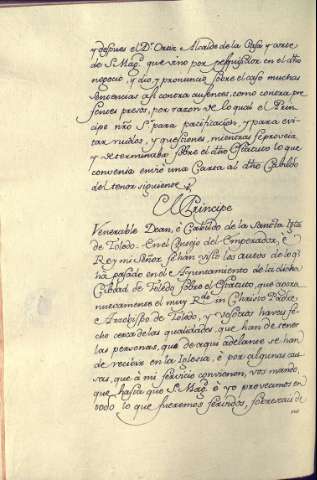 y despues el Dor. Ortiz Alcalde de la Casa y corte
de S. Magd. que vino por pesquisidor en el dho
negocio, y dio y pronunció sobre el caso muchas
sentencias asi contra ausentes, como contra pre
sentes presos, por razon de lo qual el Prin
cipe nro Sr. para pacificacion, y para evi
tar ruidos, y questiones, mientras se proveia
y se terminaba sobre el dho Estatuto lo que
convenia embió una Carta al dho Cabildo
del tenor siguiente
El Principe
Venerable Dean, è Cabildo de la Sancta Igla
de Toledo. En el Consejo del Emperador, è
Rey mi Señor se hàn visto los autos de lo q̃
ha pasado en el Ayuntamiento de la dicha
Ciudad de Toledo sobre el Estatuto, que agora
nuevamente el muy Rdo. in Christo Padre
e Arzobispo de Toledo, y vosotros haveis fe
cho cerca de las qualidades que han de tener
las personas, que de aqui adelante se han
de recibir en la Iglesia, è por algunas cau
sas, que à mi servicio convienen, vos mando,
que hasta que S. Magd. ò yo proveamos en
todo lo que fueremos servidos, sobreseais de